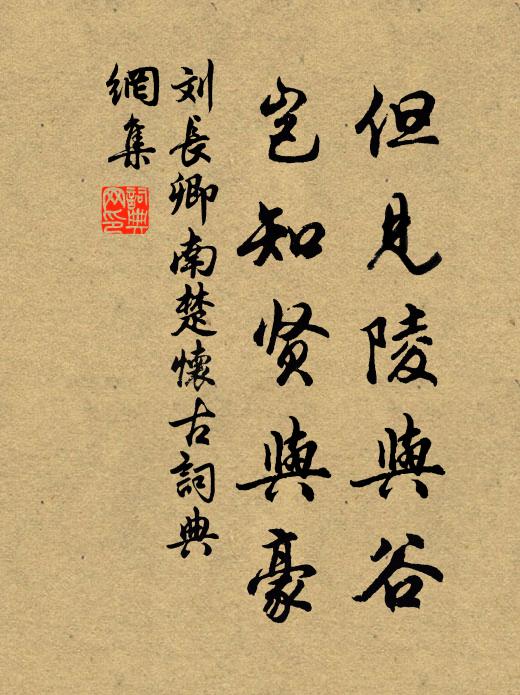 但见陵與谷
岂知贤與豪
刘長卿南楚懷古詞典
網集
詞典
网印